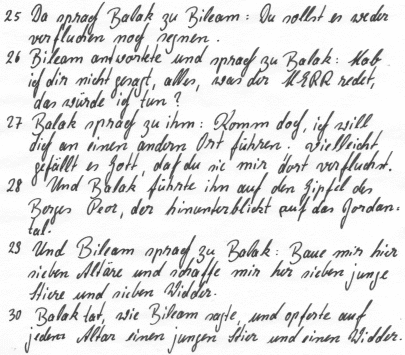 25 Da sprach Balak zu Bileam: Du sollst es weder
verfluchen noch segnen.
26 Bileam antwortete und sprach zu Balak: Hab
ich dir nicht gesagt, alles, was der HERR redet,
das würde ich tun?
27 Balak sprach zu ihm: Komm doch, ich will
dich an einen andern Ort führen. Vielleicht
gefällt es Gott, daß du sie mir dort verfluchst.
28 Und Balak führte ihn auf den Gipfel des
Berges Peor, der hinunterblickt auf das Jordan=
tal.
29 Und Bileam sprach zu Balak: Baue mir hier
sieben Altäre und schaffe mir her sieben junge
Stiere und sieben Widder.
30 Balak tat, wie Bileam sagte, und opferte auf
jedem Altar einen jungen Stier und einen Widder.